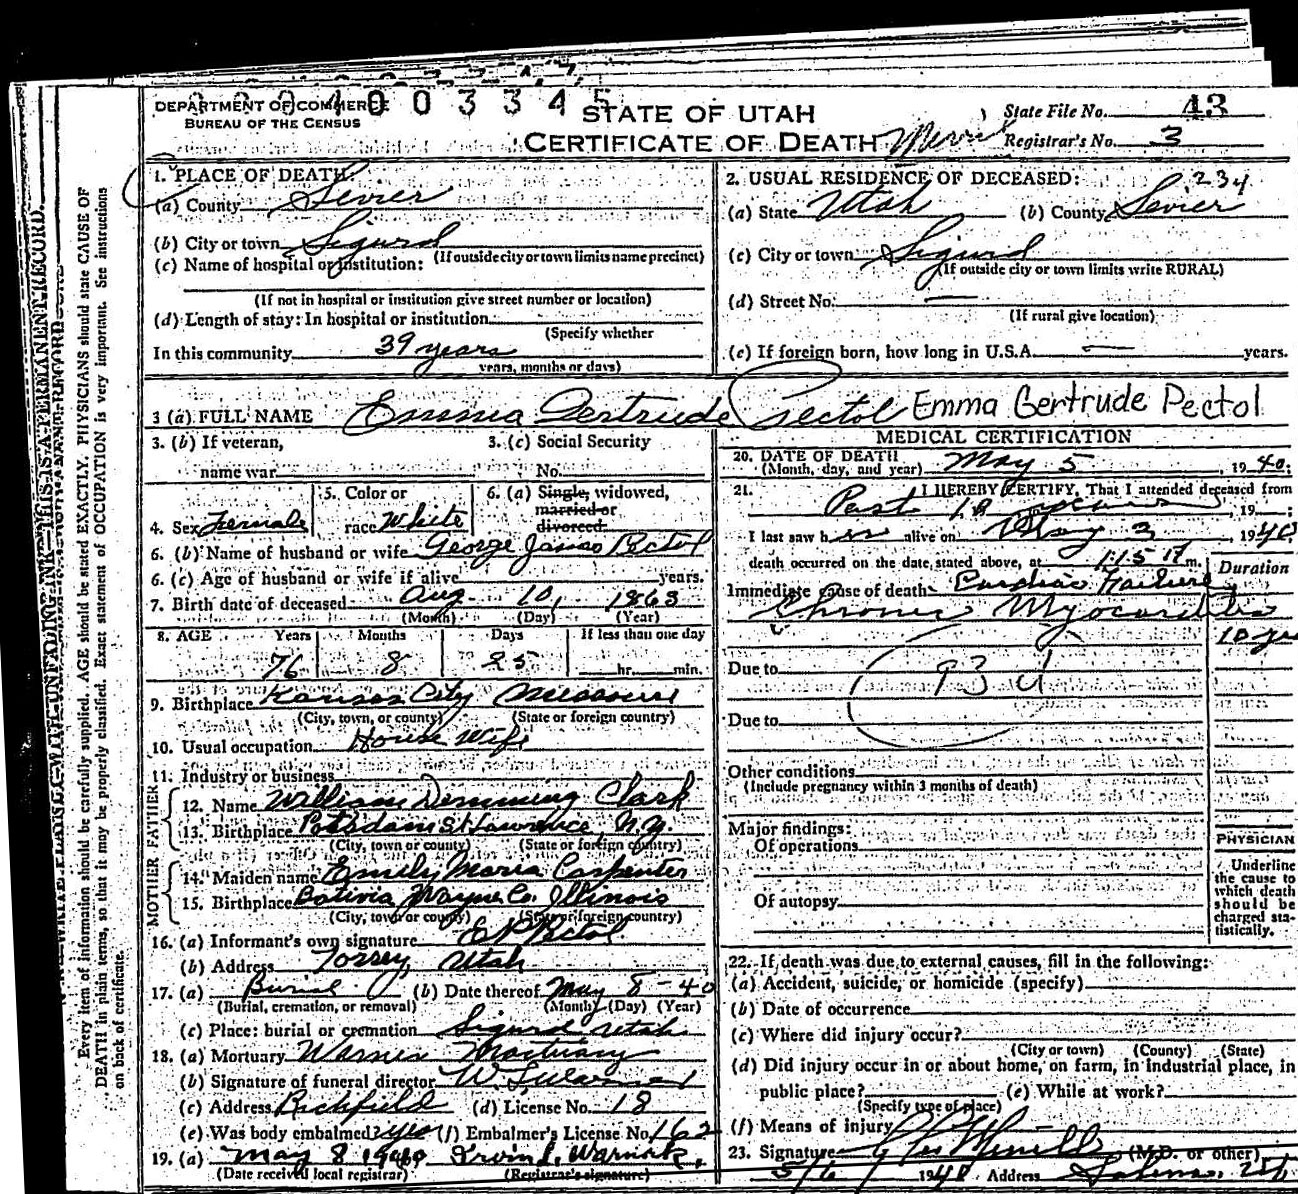 0 0 4 0 0 3 3 4 5
DEPARTMENT OF COMMERCE
BUREAU OF THE CENSUS
STATE OF UTAH
CERTIFICATE OF DEATH
State File No. 43
Registrar's No. 3
1. PLACE OF DEATH:
(a) County Sevier
(b) City or town Sigurd
(If outside city or town limits name precinct)
(c) Name of hospital or institution:
(If not in hospital or institution give street number or location)
(d) Length of stay: In hospital or institution
(Specify whether
In this community 39 years
years, months or days)
2. USUAL RESIDENCE OF DECEASED: 234
(a) State Utah (b) County Sevier
(c) City or town Sigurd
(If outside city or town limits write RURAL)
(d) Street No. —
(If rural give location)
(e) If foreign born, how long in U.S.A. — years.
3 (a) FULL NAME Emma Gertrude Pectol Emma Gertrude Pectol
3. (b) If veteran, name war
3. (c) Social Security No.
4. Sex Female
5. Color or race White
6. (a) Single, widowed, married or divorced.
6. (b) Name of husband or wife George James Pectol
6. (c) Age of husband or wife if alive years.
7. Birth date of deceased Aug. 10, 1863
(Month) (Day) (Year)
8. AGE Years Months Days If less than one day
76 8 25 hr. min.
9. Birthplace Kansas City Missouri
(City, town, or county) (State or foreign country)
10. Usual occupation House Wife
11. Industry or business
FATHER
12. Name William Demming Clark
13. Birthplace Potsdam St Lawrence, N.Y.
(City, town or county) (State or foreign country)
MOTHER
14. Maiden name Emily Maria Carpenter
15. Birthplace Bativia Wayne Co. Illinois
(City, town or county) (State or foreign country)
16. (a) Informant's own signature E P Pectol
(b) Address Torrey, Utah
17. (a) Burial (b) Date thereof May 8 - 40
(Burial, cremation, or removal) (Month) (Day) (Year)
(c) Place: burial or cremation Sigurd Utah
18. (a) Mortuary Warnix Mortuary
(b) Signature of funeral director
(c) Address Richfield (d) License No. 18
(e) Was body embalmed? yes (f) Embalmer's License No. 162
19. (a) May 8 1940 Irvin L. Warnick,
(Date received local registrar) (Registrar's signature)
MEDICAL CERTIFICATION
20. DATE OF DEATH
(Month, day, and year) May 5, 1940.
21. I HEREBY CERTIFY, That I attended deceased from
Past 10 years, 19 ;
I last saw her alive on May 3 1940
death occurred on the date stated above, at 1:15 P m.
Duration
Immediate cause of death Cardiac Failure
Chronic Myocarditis
10 yrs
Due to 93 d
Due to
Other conditions
(Include pregnancy within 3 months of death)
Major findings:
Of operations
Of autopsy
PHYSICIAN
Underline
the cause to
which death
should be
charged sta-
tistically.
22. If death was due to external causes, fill in the following:
(a) Accident, suicide, or homicide (specify)
(b) Date of occurrence
(c) Where did injury occur?
(City or town) (County) (State)
(d) Did injury occur in or about home, on farm, in industrial place, in
public place? (e) While at work?
(Specify type of place)
(f) Means of injury
23. Signature (M.D. or other)
5/6 1940 Address Salina, Utah
N. B.—WRITE PLAINLY, WITH UNFADING INK—THIS IS A PERMANENT RECORD.
Every item of information should be carefully supplied. AGE should be stated EXACTLY. PHYSICIANS should state CAUSE OF
DEATH in plain terms, so that it may be properly classified. Exact statement of OCCUPATION is very important. See instructions
on back of certificate.